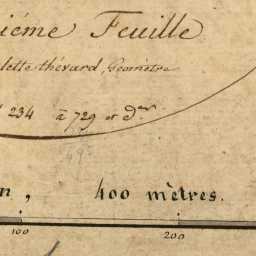 iéme Feuille
lette thévard, Géomètre
234 à 729 et der
n, 400 mètres.
100 200